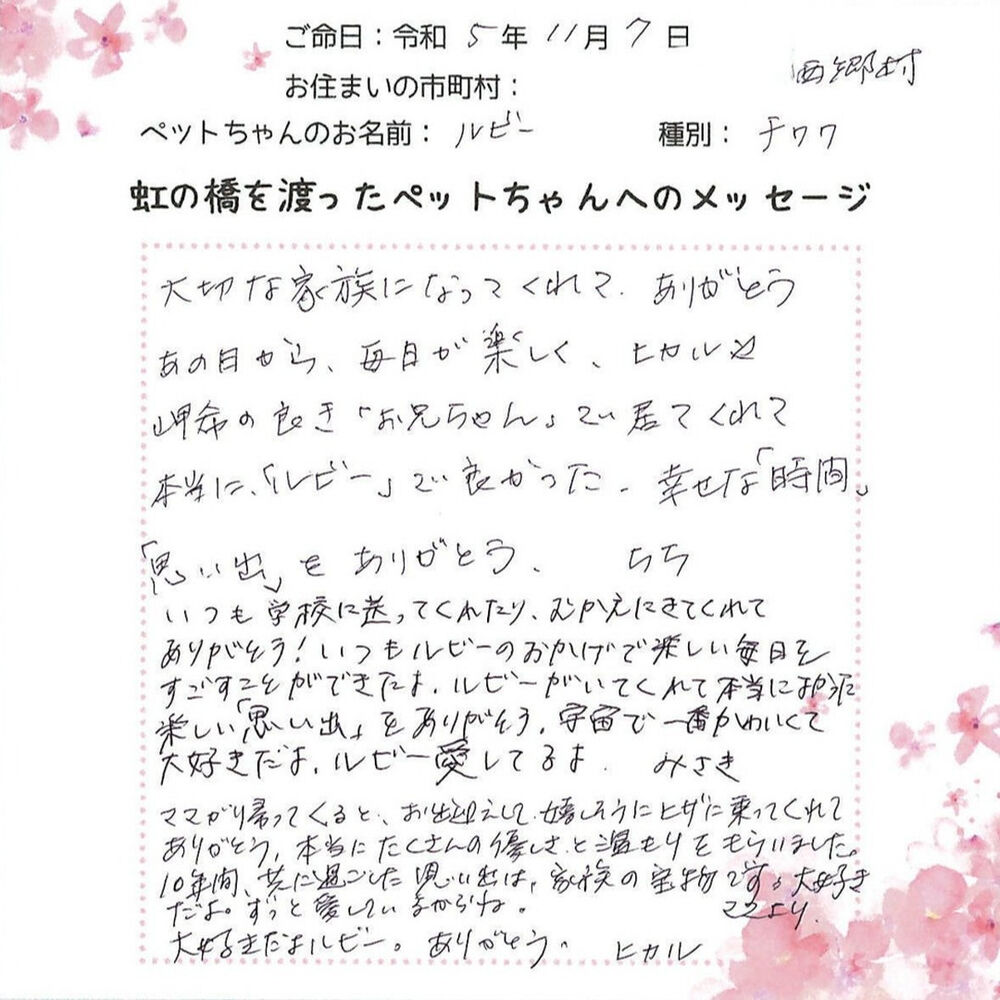 ご命日：令和 5年 11月 7日
お住まいの市町村： 西郷村
ペットちゃんのお名前： ルビー 種別： チワワ
虹の橋を渡ったペットちゃんへのメッセージ
大切な家族になってくれて、ありがとう
あの日から、毎日が楽しく、ヒカルと
岬希の良き「お兄ちゃん」でい居てくれて
本当に、「ルビー」で良かった。幸せな「時間」
「思い出」をありがとう、 ちち
いつも学校に送ってくれたり、むかえにきてくれて
ありがとう！いつもルビーのおかげで楽しい毎日を
すごすことができたよ。ルビーがいてくれて本当によかった
楽しい「思い出」をありがとう。宇宙で一番かわいくて
大好きだよ。ルビー愛してるよ。 みさき
ママがり帰ってくると、お出迎えして、嬉しそうにヒザに乗ってくれて
ありがとう。本当にたくさんの優しさと温もりをもらいました。
10年間、共に過ごした思い出は、家族の宝物です。大好き
だよ。ずっと愛しているからね。 ママより.
大好きだよルビー。ありがとう。 ヒカル